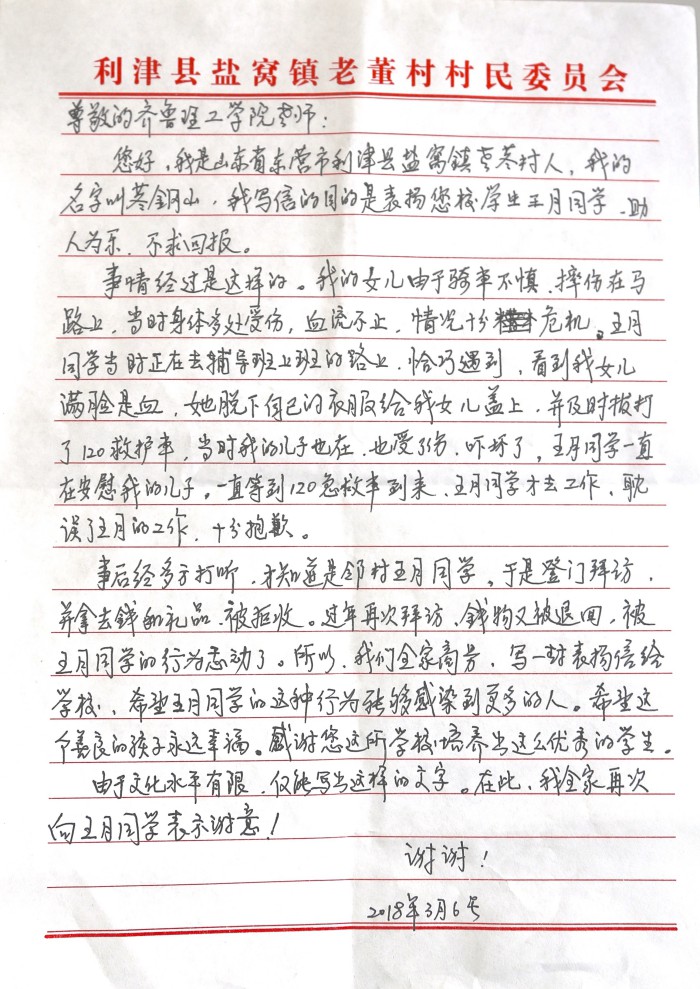 利津县盐窝镇老董村村民委员会
尊敬的齐鲁理工学院老师：
您好，我是山东省东营市利津县盐窝镇老苍村人，我的
名字叫苍钢山，我写信的目的是表扬您校学生王月同学，助
人为乐、不求回报。
事情经过是这样的。我的女儿由于骑车不慎、摔伤在马
路上，当时身体多处受伤，血流不止，情况十分危机。王月
同学当时正在去辅导班上班的路上，恰巧遇到，看到我女儿
满脸是血，她脱下自己的衣服给我女儿盖上，并及时拨打
了120救护车，当时我的儿子也在，也受了伤、吓坏了，王月同学一直
在安慰我的儿子。一直等到120急救车到来、王月同学才去工作，耽
误了王月的工作，十分抱歉。
事后经多方打听，才知道是邻村王月同学，于是登门拜访，
并拿去钱和礼品、被拒收。过年再次拜访、钱物又被退回，被
王月同学的行为感动了。所以，我们全家商号，写一封表扬信给
学校，希望王月同学的这种行为能够感染到更多的人。希望这
个善良的孩子永远幸福。感谢您这所学校培养出这么优秀的学生。
由于文化水平有限，仅能写出这样的文字。在此，我全家再次
向王月同学表示谢意！
谢谢！
2018年3月6号